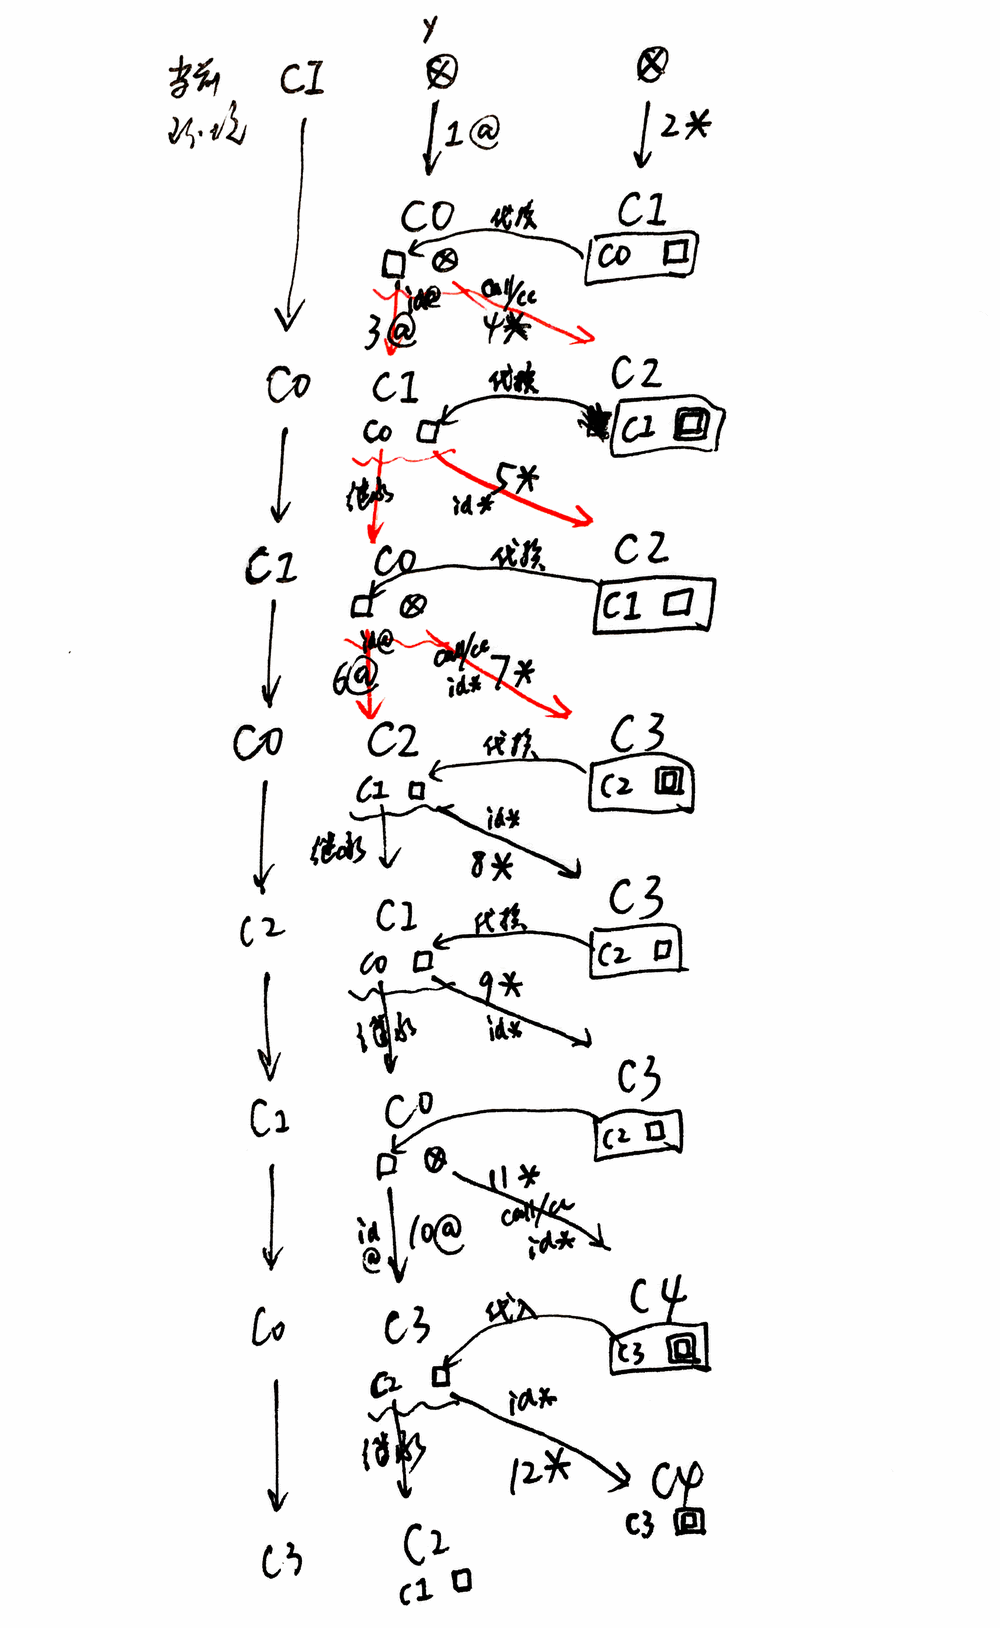 Y
当前 CI
环境
1@ 2*
C0 代换 C1
C0
id@ call/cc
3@ 4*
C0 C1 代换 C2
C0 C1
继承 5*
id*
C1 C0 代换 C2
C1
id@ call/cc
6@ id* 7*
C0 C2 代换 C3
C1 C2
继承 id*
8*
C2 C1 代换 C3
C0 C2
继承 9*
id*
C1 C0 C3
C2
11*
id 10@ call/cc
@ id*
C0 C3 代入 C4
C3
C2 id*
继承 12*
C4
C3
C3 C2
C1